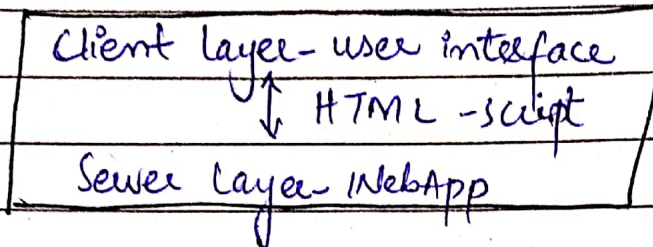 Client Layer - user interface
HTML - script
Server Layer - WebApp